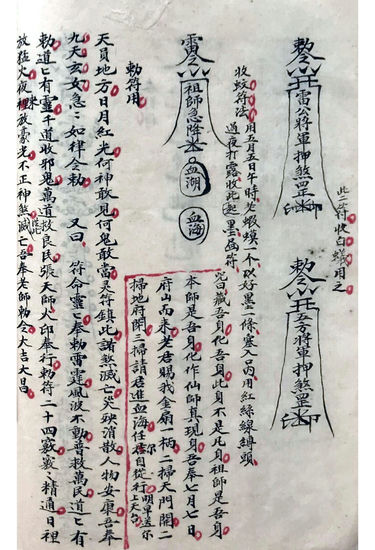 敕令 雷公將軍押煞罡 印
此二符收白蟻用之
敕令 五方將軍押煞罡 印
雷令 祖師急降
血湖
血海
收蚊符法 用五月五日午時
蝦蟆一个 取好墨一條 塞入口內 用紅絲線縛頭
過夜打露 收此起墨画符
咒曰 藏吾身化吾身 此身不是凡身 祖師是吾身
本師是吾身 化作仙師真現身 吾奉七月七日
府山而來 老君賜我金扇一柄 一掃天門開 二
掃地府開 三掃請君進血海 任君自從行
明早送尔上天台
勅符用
天員地方 日月紅光 何神敢見 何鬼敢當 灵符鎮此 諸煞滅亡 災殃消散 人物安康 吾奉
九天玄女急急如律令勅 又曰 符命靈靈 奉勅雷霆 風波不動 普救萬民 道道有
勅 道道有靈 千道收邪鬼 萬道救良民 張天師火印奉行 勅符二十四竅 竅竅精通 日裡
放猛火 夜裡放豪光 不正神煞 滅亡 吾奉老師勅令 大吉大昌